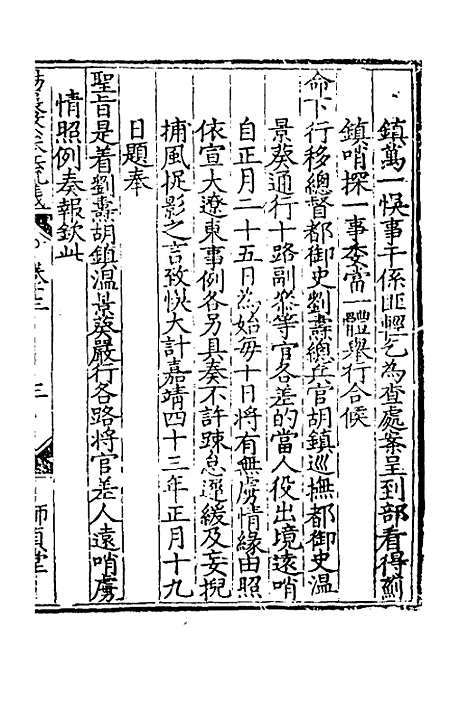 鎮萬一悞事干係匪輕乞為查處案呈到部看得薊
鎮哨探一事委當一體舉行合候
命下行移總督都御史劉燾總兵官胡鎮巡撫都御史溫
景葵通行十路副叅等官各差的當人役出境遠哨
自正月二十五日為始每十日將有無虜情緣由照
依宣大遼東事例各另具奏不許踈怠遲緩及妄捏
捕風捉影之言致悞大計嘉靖四十三年正月十九
日題奉
聖旨是着劉燾胡鎮溫景葵嚴行各路將官差人遠哨虜
情照例奏報欽此
卷三 三 師頁堂